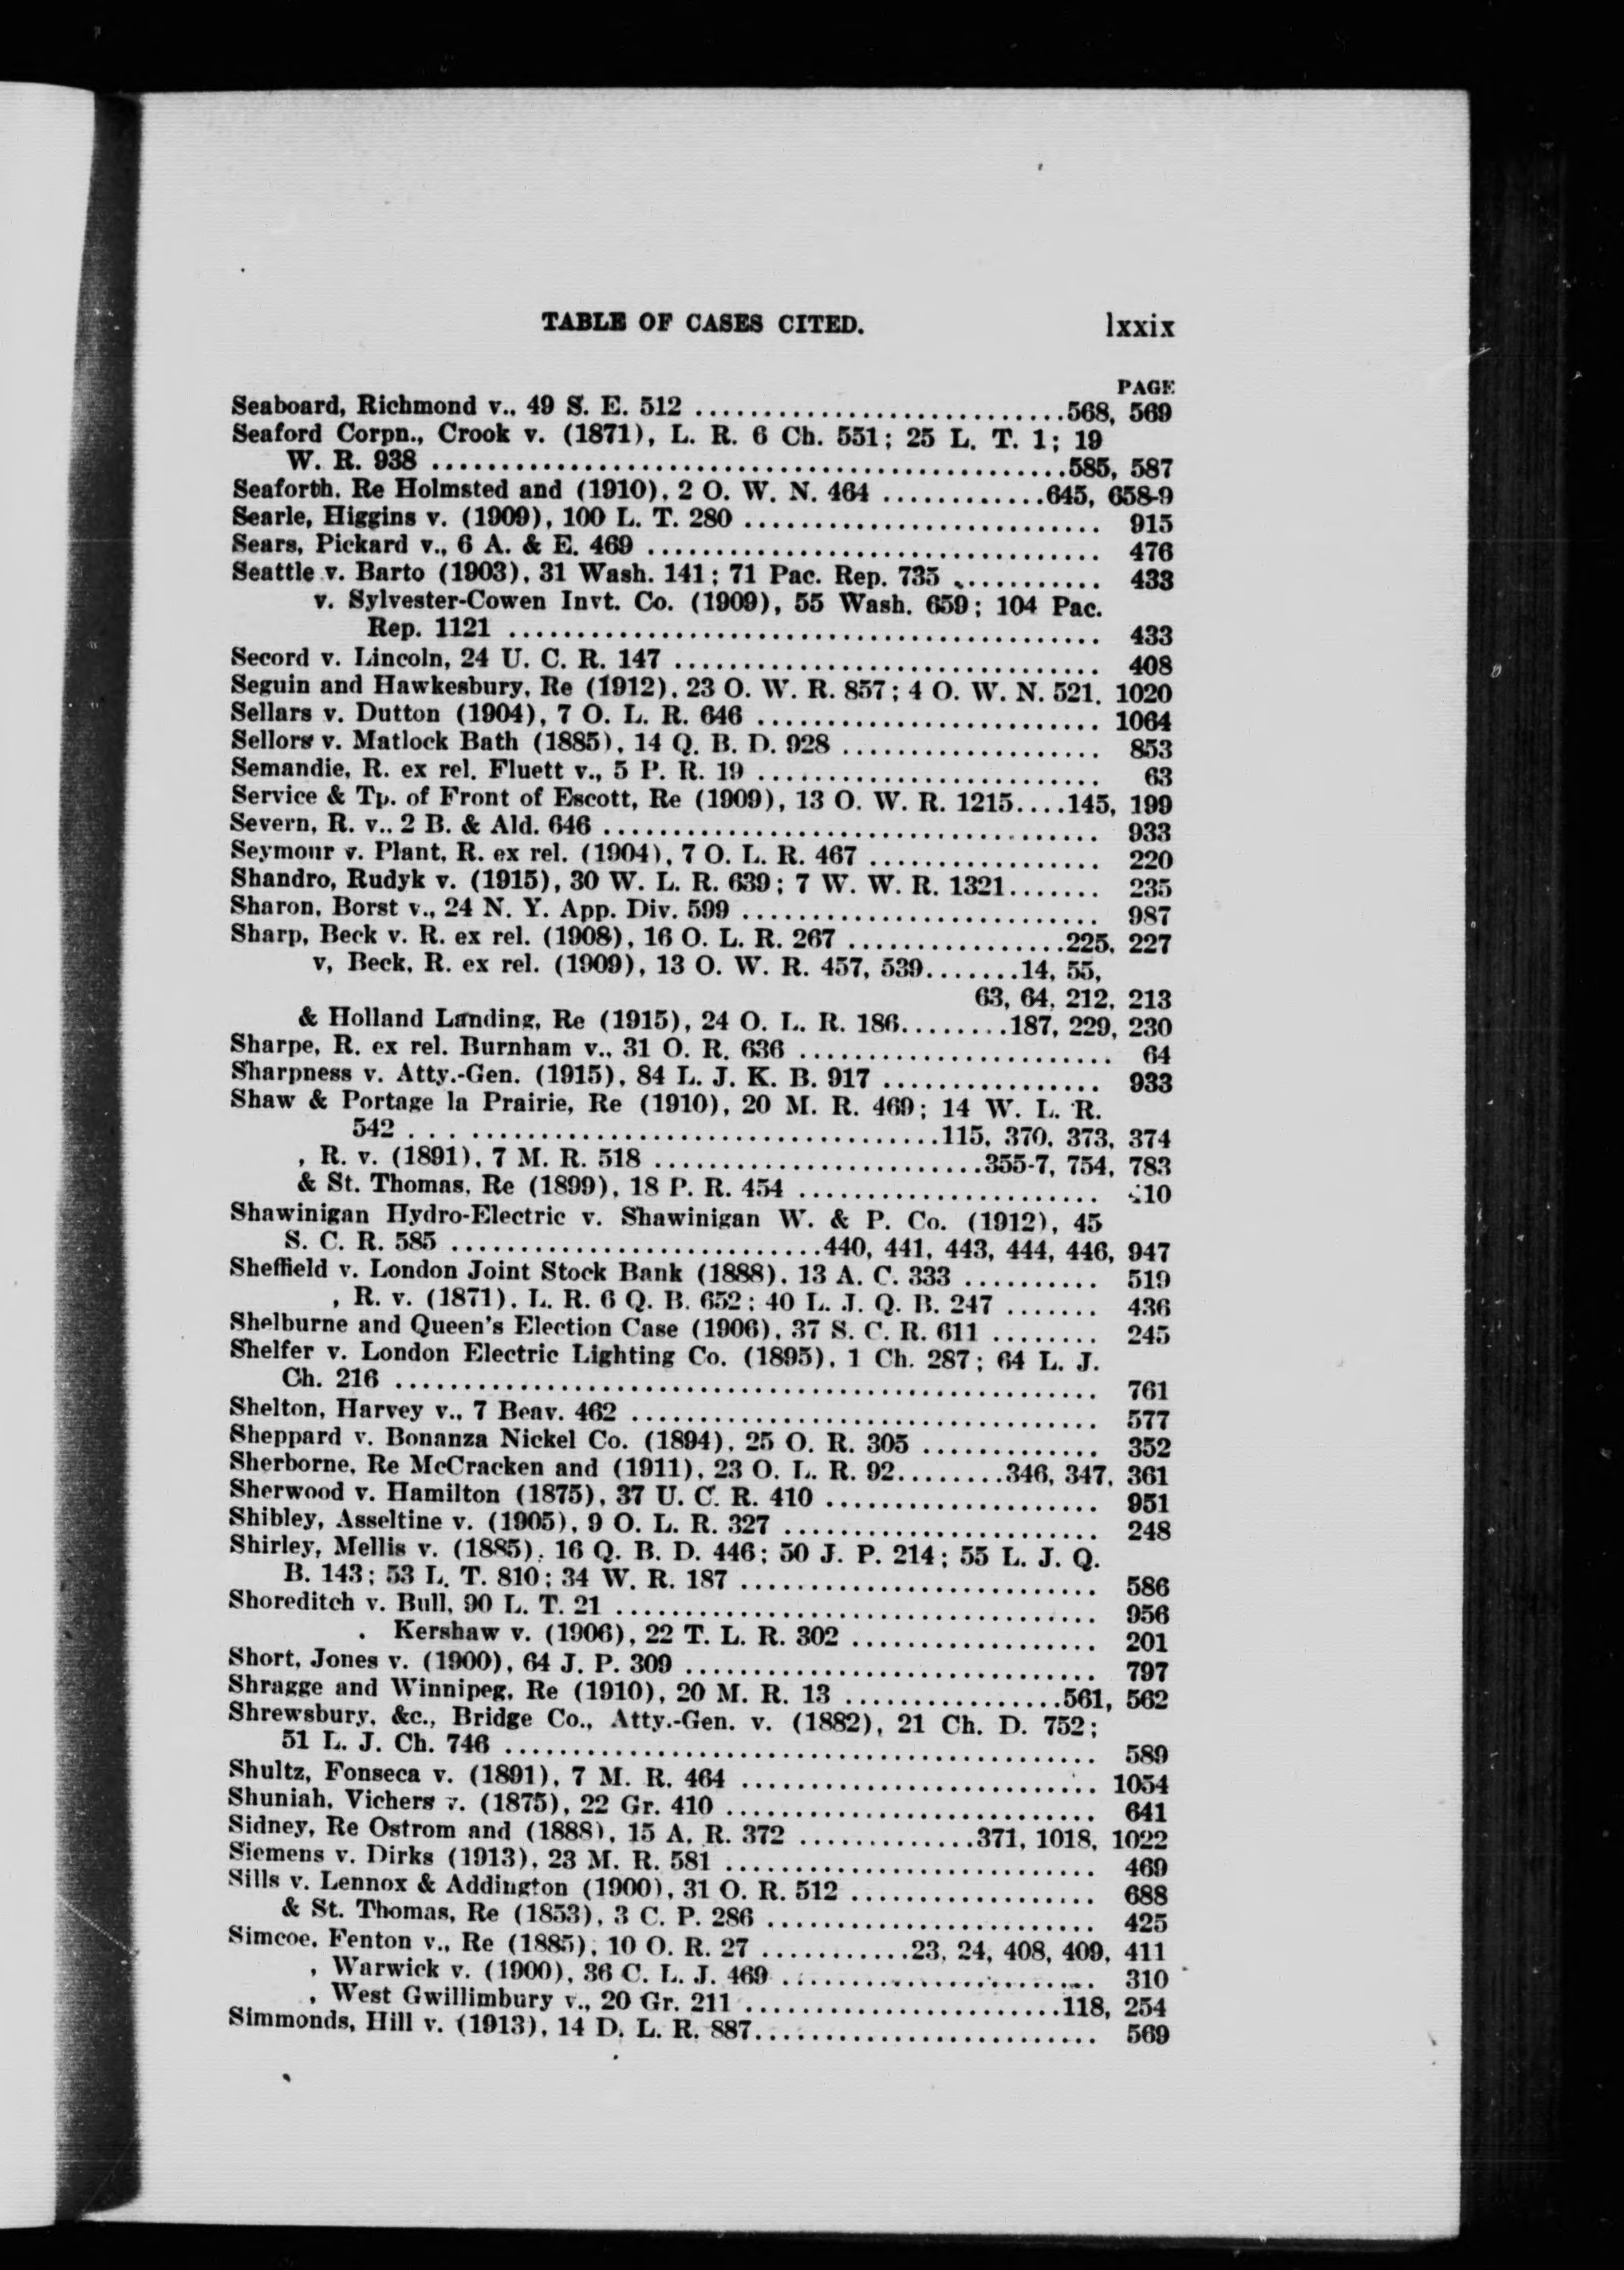 TABLE OF CASES CITED. lxxix
PAGE
Seaboard, Richmond v., 49 S. E. 512 ............................568, 569
Seaford Corpn., Crook v. (1871), L. R. 6 Ch. 551; 25 L. T. 1; 19
W. R. 938 ................................................585, 587
Seaforth, Re Holmsted and (1910), 2 O. W. N. 464 ............645, 658-9
Searle, Higgins v. (1909), 100 L. T. 280 ........................... 915
Sears, Pickard v., 6 A. & E. 469 .................................. 476
Seattle v. Barto (1903), 31 Wash. 141; 71 Pac. Rep. 735 ........... 433
v. Sylvester-Cowen Invt. Co. (1909), 55 Wash. 659; 104 Pac.
Rep. 1121 ............................................ 433
Secord v. Lincoln, 24 U. C. R. 147 ................................ 408
Seguin and Hawkesbury, Re (1912), 23 O. W. R. 857; 4 O. W. N. 521. 1020
Sellars v. Dutton (1904), 7 O. L. R. 646 .......................... 1064
Sellors v. Matlock Bath (1885), 14 Q. B. D. 928 ................... 853
Semandie, R. ex rel. Fluett v., 5 P. R. 19 .......................... 63
Service & Tp. of Front of Escott, Re (1909), 13 O. W. R. 1215....145, 199
Severn, R. v., 2 B. & Ald. 646 ..................................... 933
Seymour v. Plant, R. ex rel. (1904), 7 O. L. R. 467 ................. 220
Shandro, Rudyk v. (1915), 30 W. L. R. 639; 7 W. W. R. 1321....... 235
Sharon, Borst v., 24 N. Y. App. Div. 599 ........................... 987
Sharp, Beck v. R. ex rel. (1908), 16 O. L. R. 267 ................225, 227
v, Beck, R. ex rel. (1909), 13 O. W. R. 457, 539.......14, 55,
63, 64, 212, 213
& Holland Landing, Re (1915), 24 O. L. R. 186........187, 229, 230
Sharpe, R. ex rel. Burnham v., 31 O. R. 636 ....................... 64
Sharpness v. Atty.-Gen. (1915), 84 L. J. K. B. 917 ................ 933
Shaw & Portage la Prairie, Re (1910), 20 M. R. 469; 14 W. L. R.
542 .......................................115, 370, 373, 374
, R. v. (1891), 7 M. R. 518 .........................355-7, 754, 783
& St. Thomas, Re (1899), 18 P. R. 454 ....................... 10
Shawinigan Hydro-Electric v. Shawinigan W. & P. Co. (1912), 45
S. C. R. 585 ............................440, 441, 443, 444, 446, 947
Sheffield v. London Joint Stock Bank (1888), 13 A. C. 333 .......... 519
, R. v. (1871), L. R. 6 Q. B. 652; 40 L. J. Q. B. 247 ....... 436
Shelburne and Queen's Election Case (1906), 37 S. C. R. 611 ........ 245
Shelfer v. London Electric Lighting Co. (1895), 1 Ch. 287; 64 L. J.
Ch. 216 .................................................... 761
Shelton, Harvey v., 7 Beav. 462 ................................... 577
Sheppard v. Bonanza Nickel Co. (1894), 25 O. R. 305 ............. 352
Sherborne, Re McCracken and (1911), 23 O. L. R. 92........346, 347, 361
Sherwood v. Hamilton (1875), 37 U. C. R. 410 .................... 951
Shibley, Asseltine v. (1905), 9 O. L. R. 327 ....................... 248
Shirley, Mellis v. (1885), 16 Q. B. D. 446; 50 J. P. 214; 55 L. J. Q.
B. 143; 53 L. T. 810; 34 W. R. 187 .......................... 586
Shoreditch v. Bull, 90 L. T. 21 .................................... 956
. Kershaw v. (1906), 22 T. L. R. 302 .................. 201
Short, Jones v. (1900), 64 J. P. 309 ............................... 797
Shragge and Winnipeg, Re (1910), 20 M. R. 13 ................561, 562
Shrewsbury, &c., Bridge Co., Atty.-Gen. v. (1882), 21 Ch. D. 752;
51 L. J. Ch. 746 ............................................ 589
Shultz, Fonseca v. (1891), 7 M. R. 464 ........................... 1054
Shuniah, Vichers v. (1875), 22 Gr. 410 ............................ 641
Sidney, Re Ostrom and (1888), 15 A. R. 372 .............371, 1018, 1022
Siemens v. Dirks (1913), 23 M. R. 581 ............................ 469
Sills v. Lennox & Addington (1900), 31 O. R. 512 .................. 688
& St. Thomas, Re (1853), 3 C. P. 286 ......................... 425
Simcoe, Fenton v., Re (1885), 10 O. R. 27 ...........23, 24, 408, 409, 411
, Warwick v. (1900), 36 C. L. J. 469 ........................ 310
, West Gwillimbury v., 20 Gr. 211 ........................118, 254
Simmonds, Hill v. (1913), 14 D. L. R. 887.......................... 569